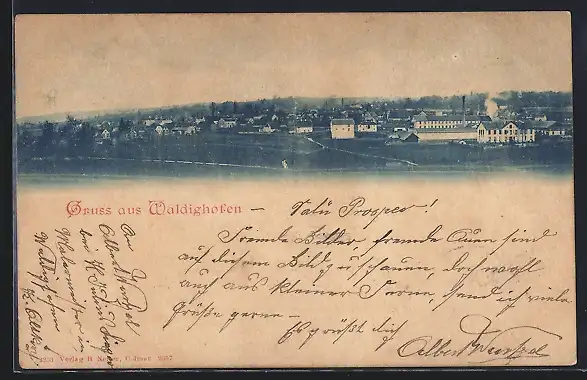 Gruss aus Waldighofen —
Salü Prosper!
Fremde Bilder fremde Auen sind
auf diesem Bild zu schauen, doch wohl
auch aus kleiner Ferne, send ich viele
Grüße gerne —
Es grüßt dich
Albert Wurtzel
An
Albert Wurtzel
bei H.
Malermeister in
Waldighofen
Verlag B